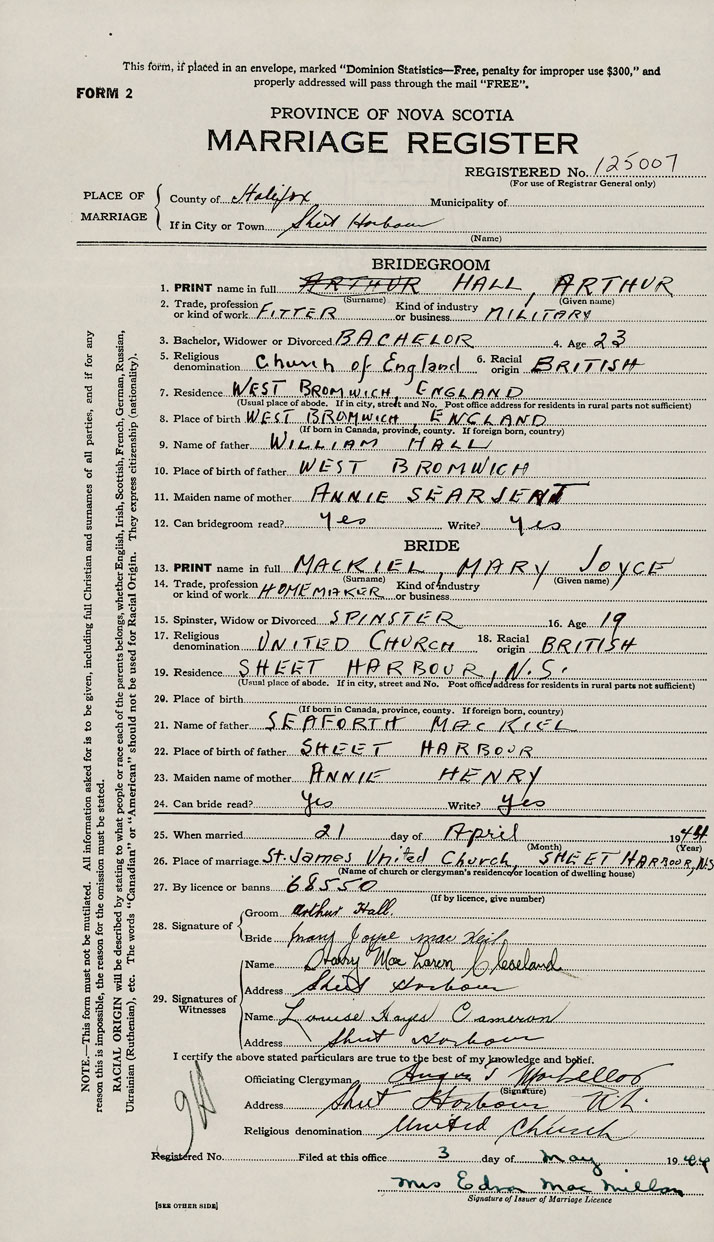 This form, if placed in an envelope, marked "Dominion Statistics—Free, penalty for improper use $300," and
properly addressed will pass through the mail "FREE".
FORM 2
PROVINCE OF NOVA SCOTIA
MARRIAGE REGISTER
REGISTERED No. 125007
(For use of Registrar General only)
PLACE OF MARRIAGE
County of Halifax Municipality of
If in City or Town Sheet Harbour
(Name)
BRIDEGROOM
1. PRINT name in full ARTHUR HALL, ARTHUR
(Surname) (Given name)
2. Trade, profession or kind of work FITTER Kind of industry or business MILITARY
3. Bachelor, Widower or Divorced BACHELOR 4. Age 23
5. Religious denomination Church of England 6. Racial origin BRITISH
7. Residence WEST BROMWICH, ENGLAND
(Usual place of abode. If in city, street and No. Post office address for residents in rural parts not sufficient)
8. Place of birth WEST BROMWICH, ENGLAND
(If born in Canada, province, county. If foreign born, country)
9. Name of father WILLIAM HALL
10. Place of birth of father WEST BROMWICH
11. Maiden name of mother ANNIE SEARSENT
12. Can bridegroom read? Yes Write? Yes
BRIDE
13. PRINT name in full MACKIEL, MARY JOYCE
(Surname) (Given name)
14. Trade, profession or kind of work HOMEMAKER Kind of industry or business
15. Spinster, Widow or Divorced SPINSTER 16. Age 19
17. Religious denomination UNITED CHURCH 18. Racial origin BRITISH
19. Residence SHEET HARBOUR, N.S.
(Usual place of abode. If in city, street and No. Post office address for residents in rural parts not sufficient)
20. Place of birth
(If born in Canada, province, county. If foreign born, country)
21. Name of father SEAFORTH MACKIEL
22. Place of birth of father SHEET HARBOUR
23. Maiden name of mother ANNIE HENRY
24. Can bride read? Yes Write? Yes
25. When married 21 day of April 1944
(Month) (Year)
26. Place of marriage St. James United Church, SHEET HARBOUR, NS
(Name of church or clergyman's residence/or location of dwelling house)
27. By licence or banns 68550
(If by licence, give number)
28. Signature of
Groom Arthur Hall.
Bride Mary Joyce Mac
29. Signatures of Witnesses
Name Harry Mac Laren Cleveland
Address Sheet Harbour
Name Louise Hayes Cameron
Address Sheet Harbour
I certify the above stated particulars are true to the best of my knowledge and belief.
Officiating Clergyman Angus
(Signature)
Address Sheet Harbour N.S.
Religious denomination United Church
Registered No. Filed at this office 3 day of May 1944
Mrs Edna MacMillan
Signature of Issuer of Marriage Licence
[SEE OTHER SIDE]
NOTE.—This form must not be mutilated. All information asked for is to be given, including full Christian and surnames of all parties, and if for any
reason this is impossible, the reason for the omission must be stated.
RACIAL ORIGIN will be described by stating to what people or race each of the parents belongs, whether English, Irish, Scottish, French, German, Russian,
Ukrainian (Ruthenian), etc. The words "Canadian" or "American" should not be used for Racial Origin. They express citizenship (nationality).